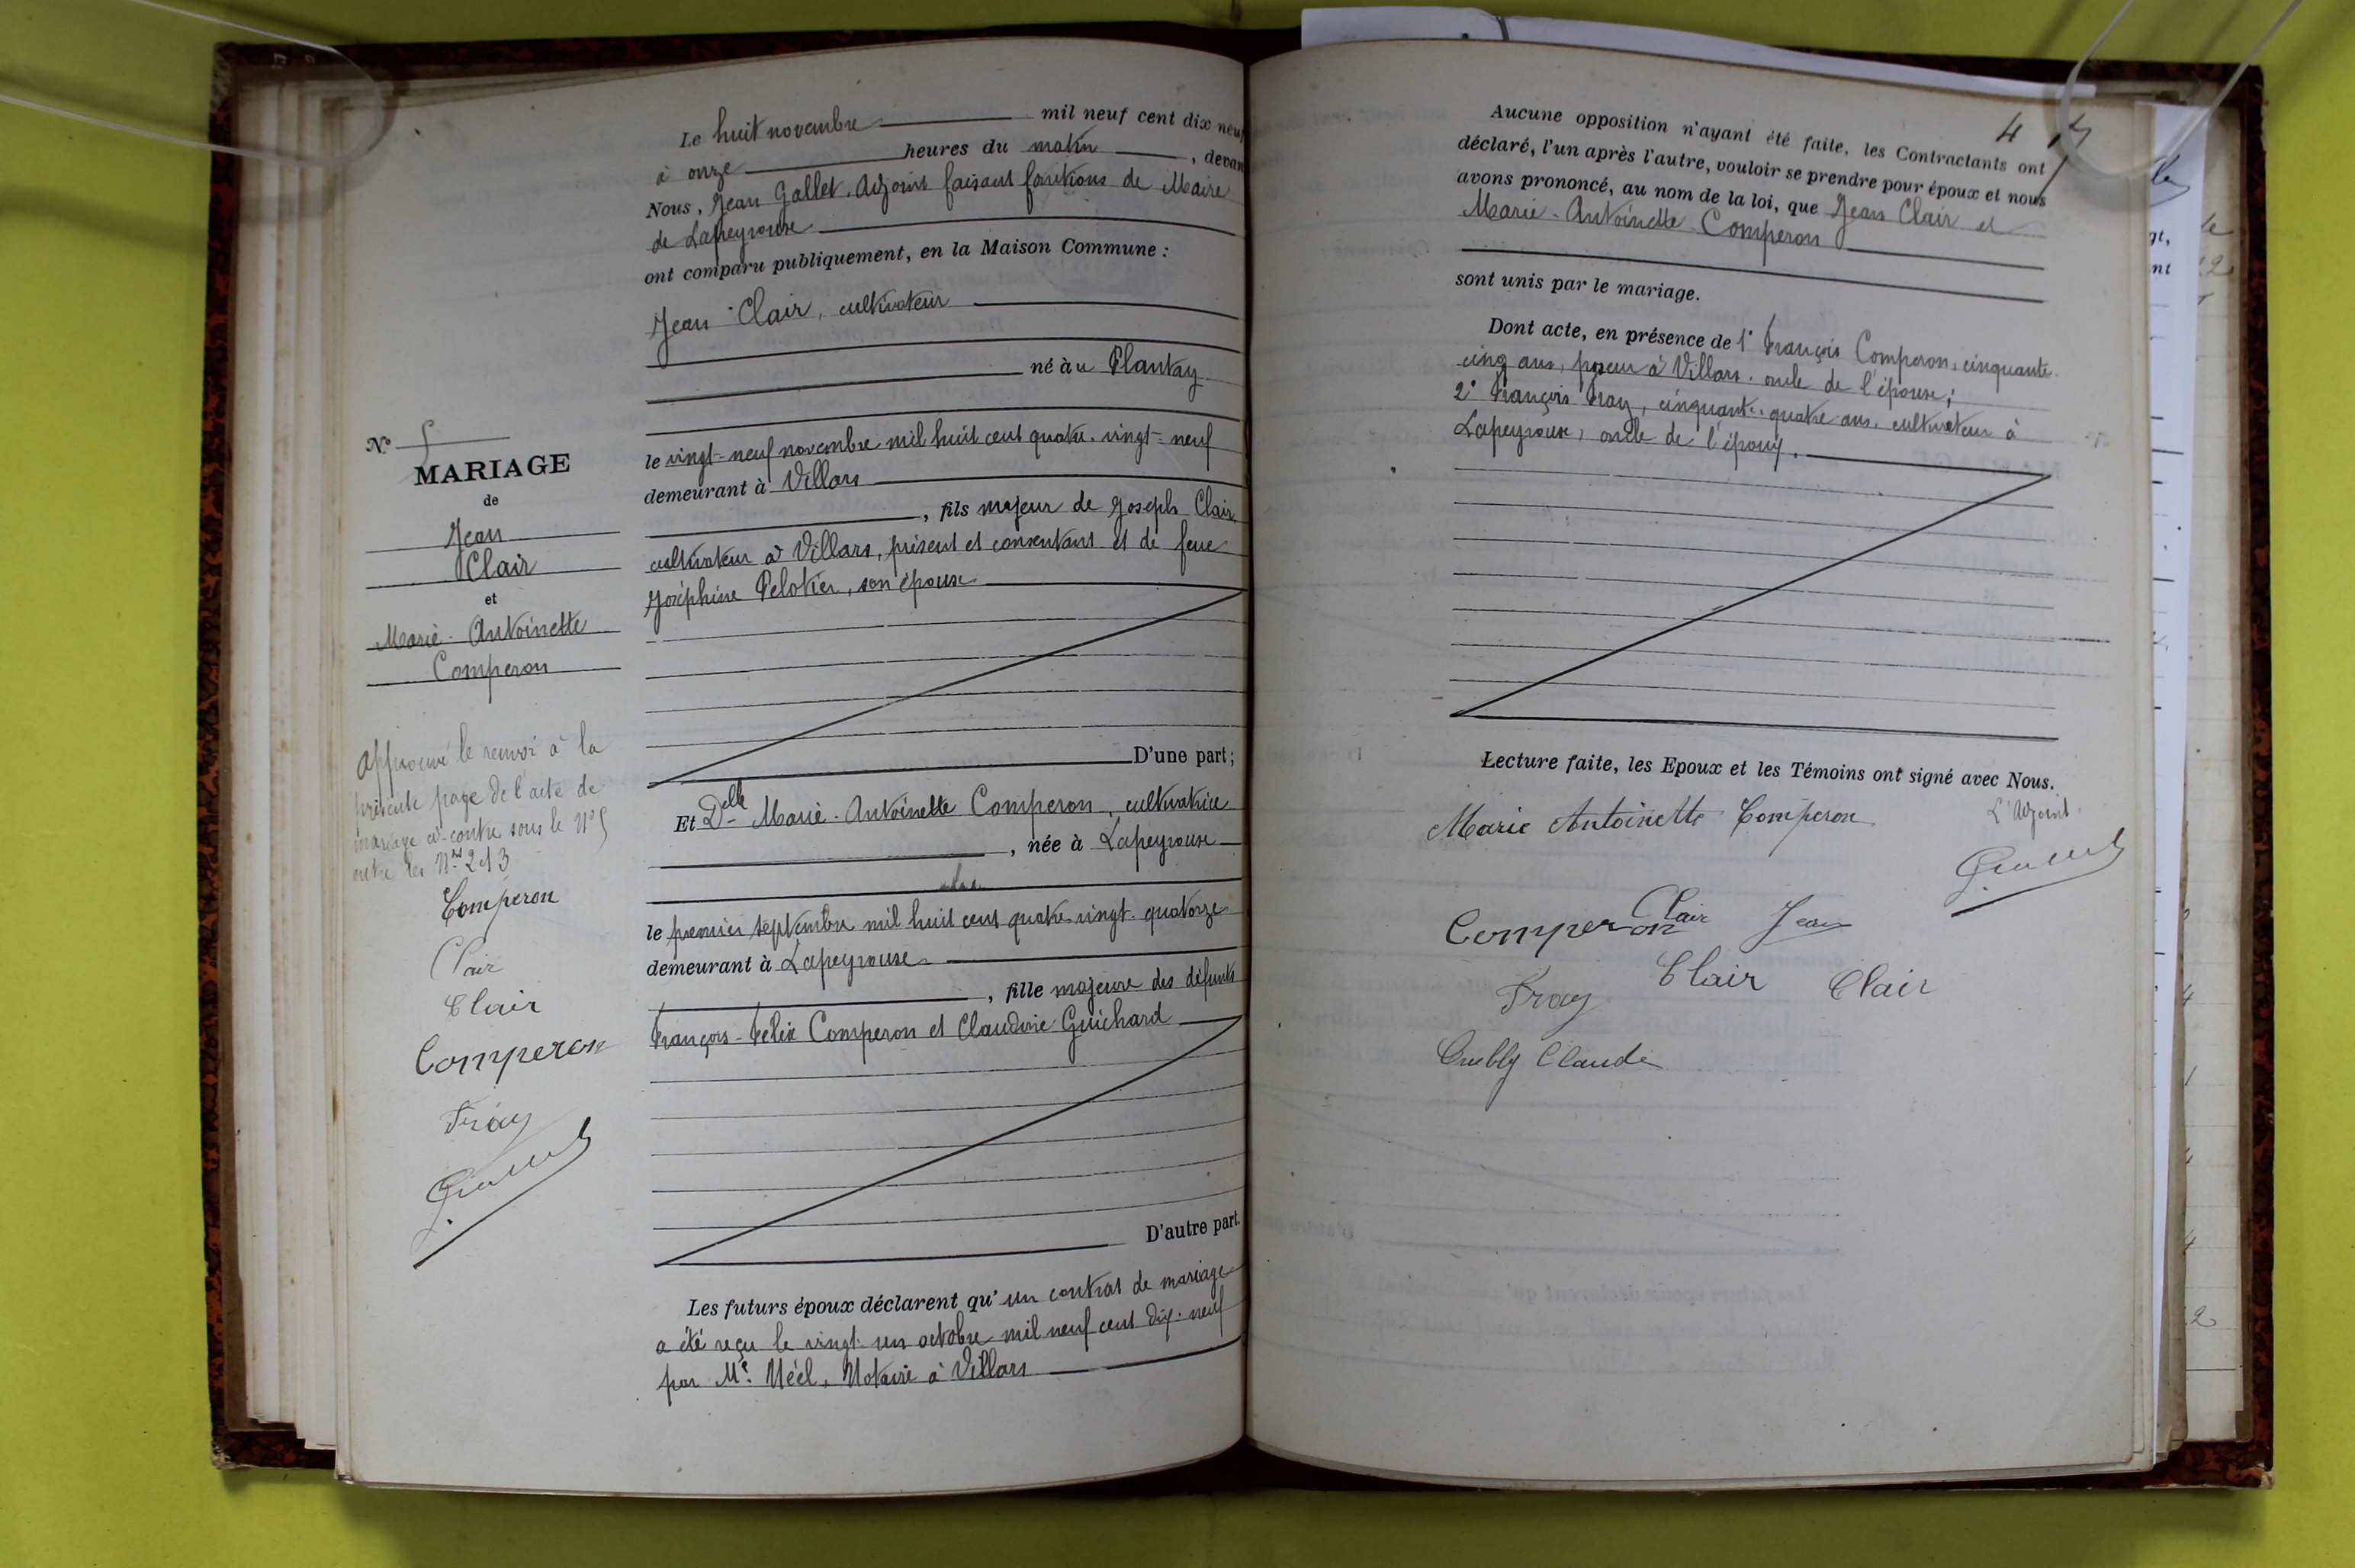 N° 5
MARIAGE
de
Jean
Clair
et
Marie-Antoinette
Comperon
Approuvé le renvoi à la
présente page de l'acte de
mariage ci-contre sous le N° 5
entre les Nos 2 et 3
Comperon
Clair
Clair
Comperon
Fray
Le huit novembre mil neuf cent dix neuf
à onze heures du matin, devan
Nous, Jean Gallet, Adjoint faisant fonctions de Maire
de Lapeyrouse
ont comparu publiquement, en la Maison Commune :
Jean Clair, cultivateur
né àu Plantay
le vingt-neuf novembre mil huit cent quatre-vingt-neuf
demeurant à Villars
, fils majeur de Joseph Clair,
cultivateur à Villars, présent et consentant et de feue
Joséphine Pelotier, son épouse
D'une part ;
Et Delle Marie-Antoinette Comperon, cultivatrice
, née à Lapeyrouse
le premier septembre mil huit cent quatre-vingt-quatorze
demeurant à Lapeyrouse
, fille majeure des défunts
François-Felix Comperon et Claudine Guichard
D'autre part.
Les futurs époux déclarent qu'un contrat de mariage
a été reçu le vingt-un octobre mil neuf cent dix-neuf
par Me Néel, Notaire à Villars
4
Aucune opposition n'ayant été faite, les Contractants ont
déclaré, l'un après l'autre, vouloir se prendre pour époux et nous
avons prononcé, au nom de la loi, que Jean Clair et
Marie-Antoinette Comperon
sont unis par le mariage.
Dont acte, en présence de 1° François Comperon, cinquante-
cinq ans, poseur à Villars, oncle de l'épouse ;
2° François Fray, cinquante-quatre ans, cultivateur à
Lapeyrouse, oncle de l'époux.
Lecture faite, les Epoux et les Témoins ont signé avec Nous.
Marie Antoinette Comperon
L'Adjoint.
Comperon
Clair Jean
Fray
Clair
Clair
Claude